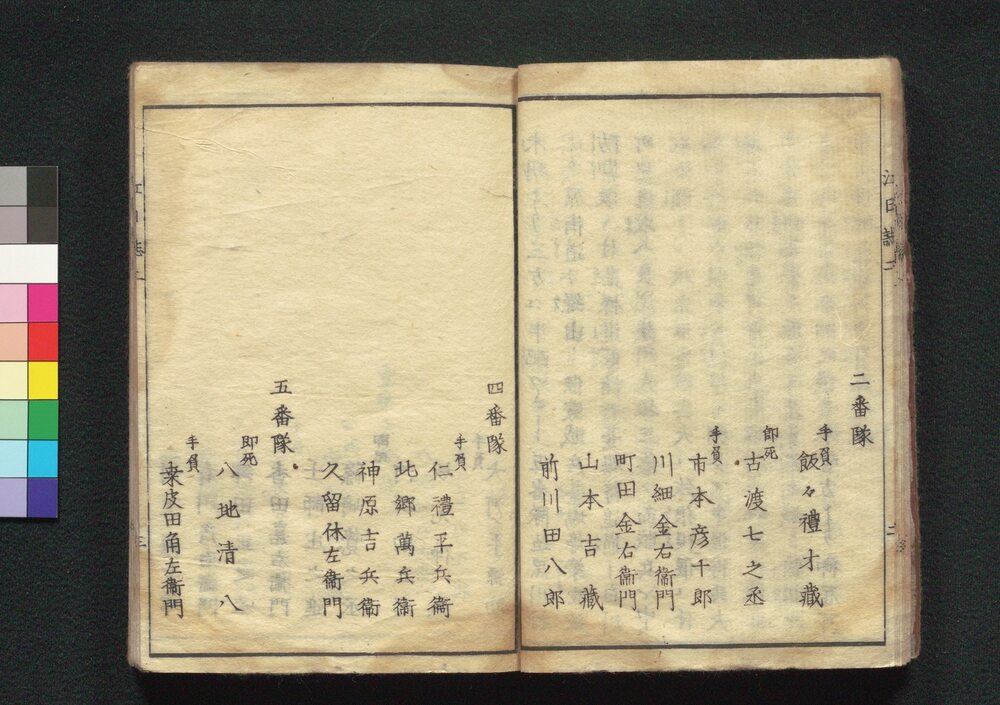 二番隊
手負
飯々禮才藏
即死
古渡七之丞
手負
市本彦千郎
川細金右衞門
町田金右衞門
山本吉藏
前川田八郎
四番隊
手負
仁禮平兵衞
北郷萬兵衞
神原吉兵衞
久留休左衞門
五番隊
即死
八地清八
手負
桒皮田角左衞門
江日誌二
二
三